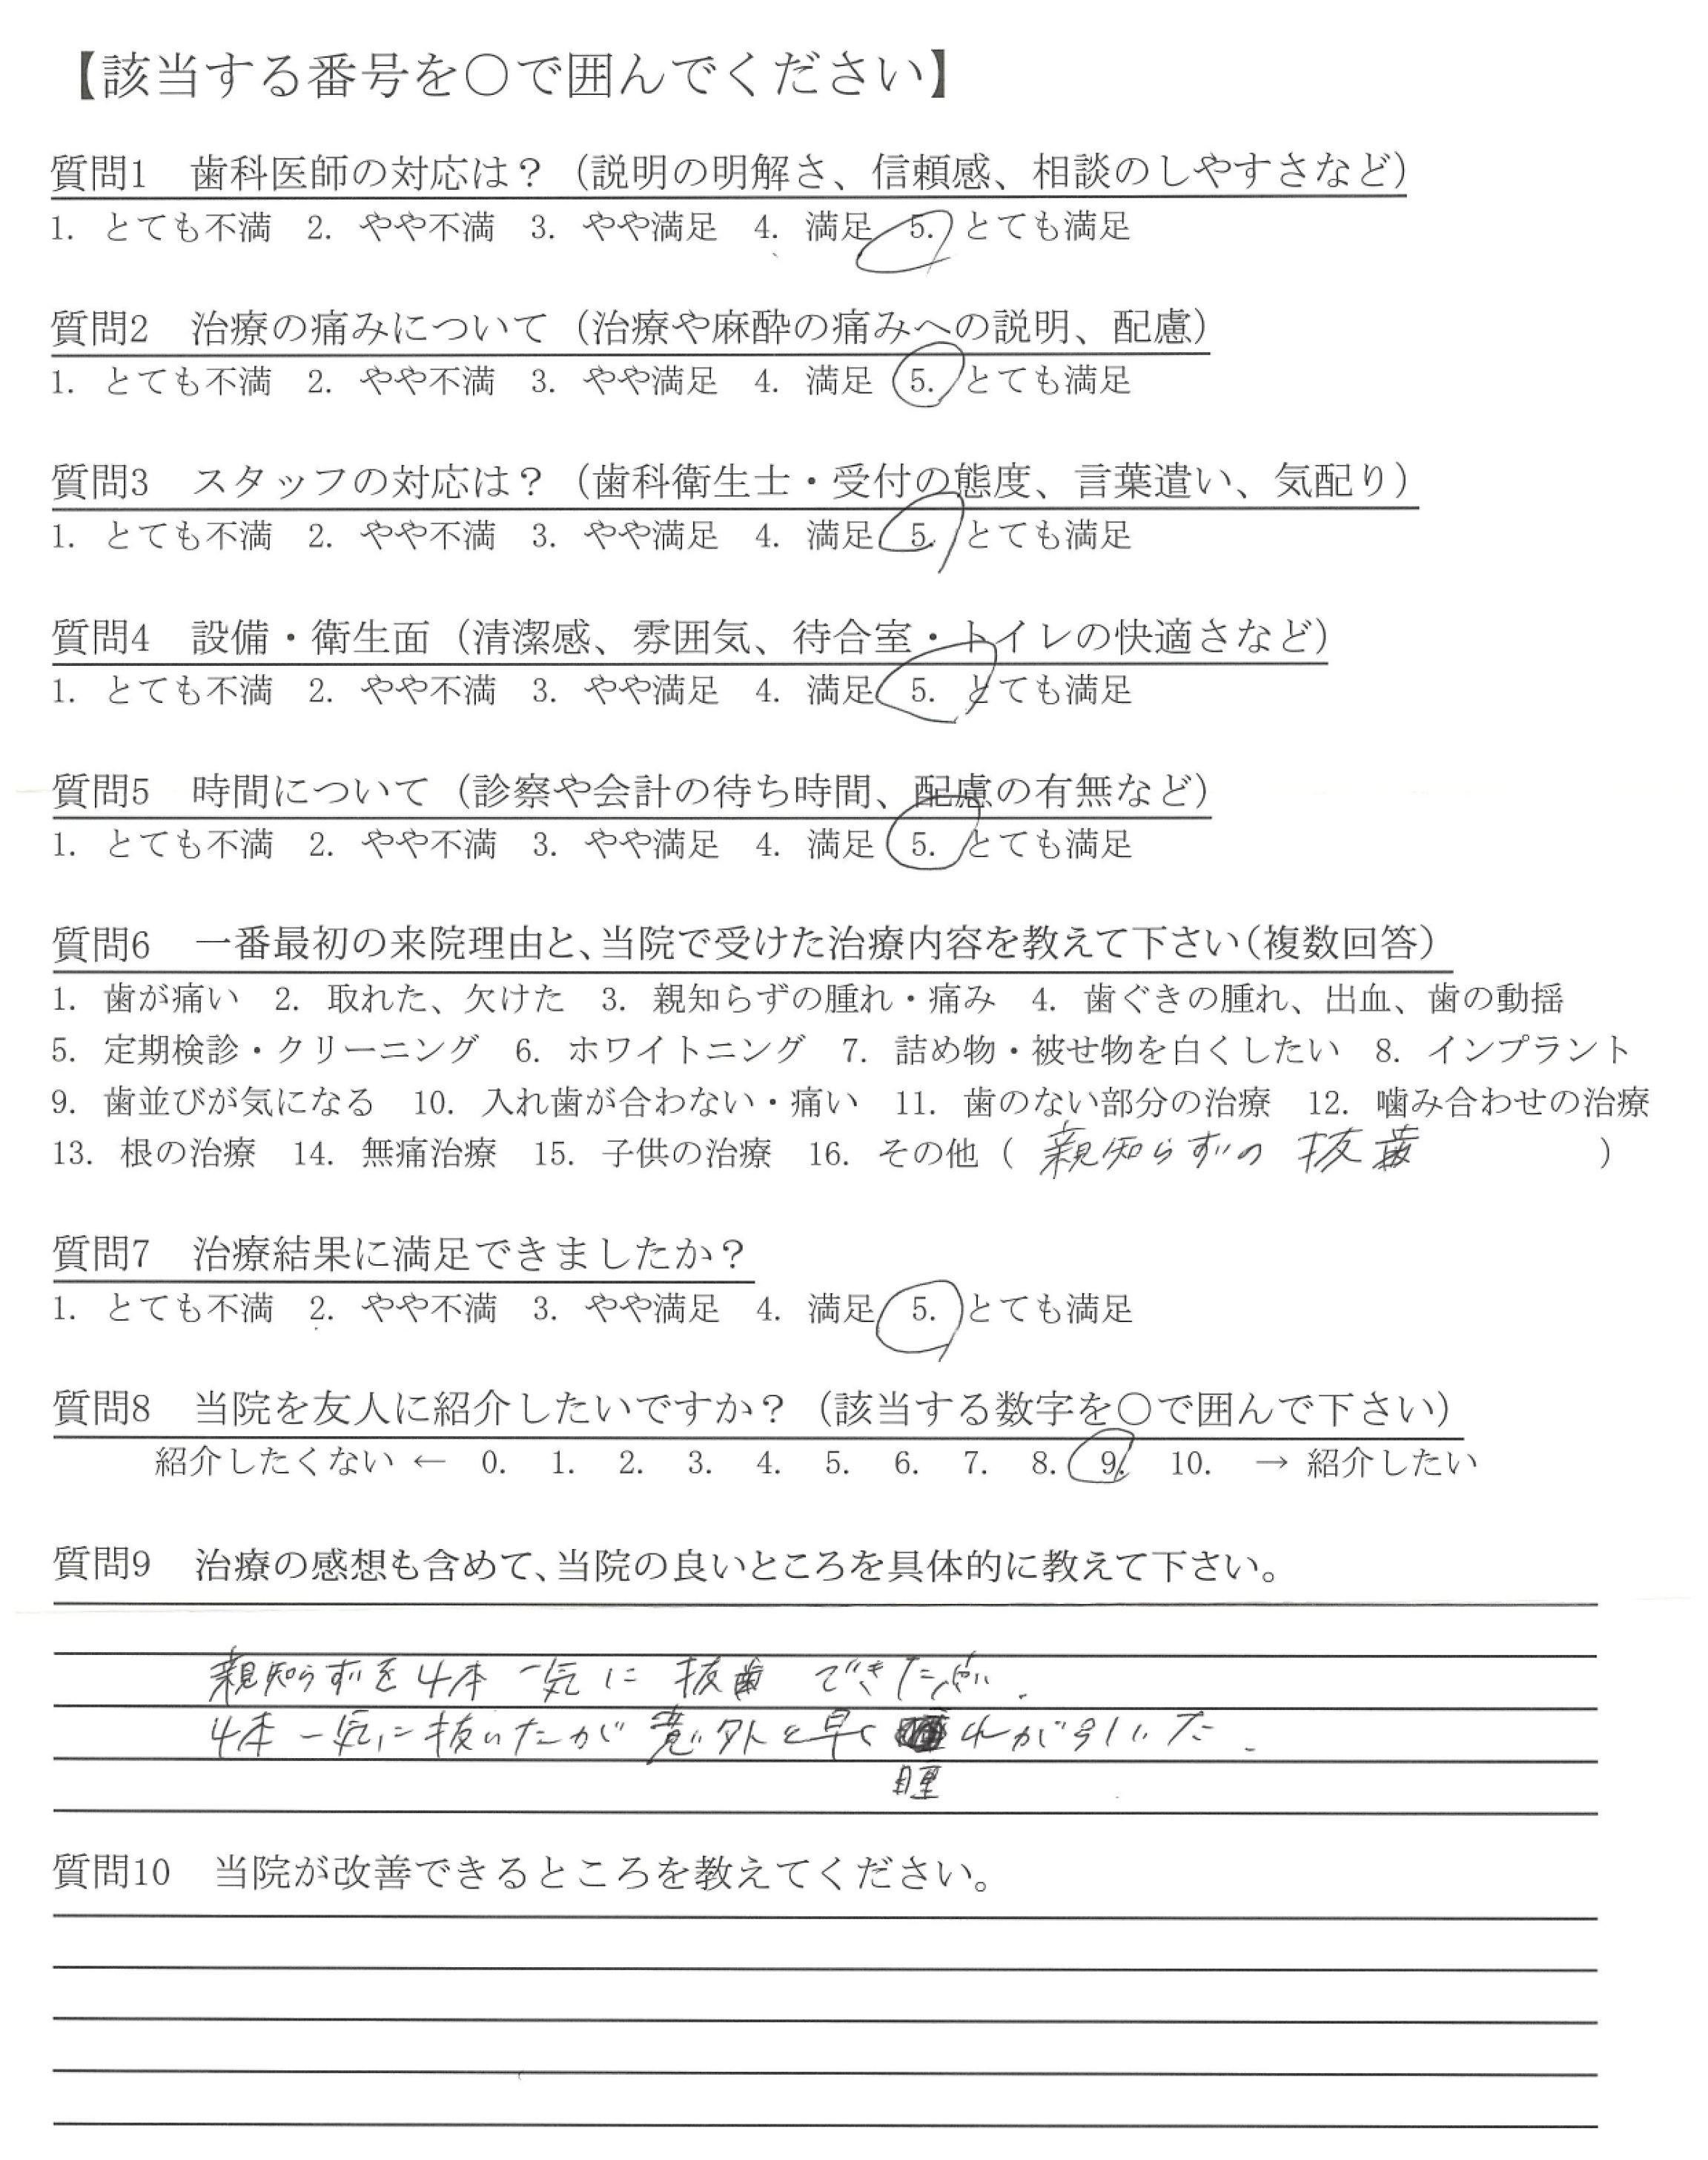 【該当する番号を○で囲んでください】
質問1　歯科医師の対応は？（説明の明解さ、信頼感、相談のしやすさなど）
1. とても不満　2. やや不満　3. やや満足　4. 満足　5. とても満足
質問2　治療の痛みについて（治療や麻酔の痛みへの説明、配慮）
1. とても不満　2. やや不満　3. やや満足　4. 満足　5. とても満足
質問3　スタッフの対応は？（歯科衛生士・受付の態度、言葉遣い、気配り）
1. とても不満　2. やや不満　3. やや満足　4. 満足　5. とても満足
質問4　設備・衛生面（清潔感、雰囲気、待合室・トイレの快適さなど）
1. とても不満　2. やや不満　3. やや満足　4. 満足　5. とても満足
質問5　時間について（診察や会計の待ち時間、配慮の有無など）
1. とても不満　2. やや不満　3. やや満足　4. 満足　5. とても満足
質問6　一番最初の来院理由と、当院で受けた治療内容を教えて下さい（複数回答）
1. 歯が痛い　2. 取れた、欠けた　3. 親知らずの腫れ・痛み　4. 歯ぐきの腫れ、出血、歯の動揺
5. 定期検診・クリーニング　6. ホワイトニング　7. 詰め物・被せ物を白くしたい　8. インプラント
9. 歯並びが気になる　10. 入れ歯が合わない・痛い　11. 歯のない部分の治療　12. 噛み合わせの治療
13. 根の治療　14. 無痛治療　15. 子供の治療　16. その他（ 親知らずの 抜歯 ）
質問7　治療結果に満足できましたか？
1. とても不満　2. やや不満　3. やや満足　4. 満足　5. とても満足
質問8　当院を友人に紹介したいですか？（該当する数字を○で囲んで下さい）
紹介したくない ← 0. 1. 2. 3. 4. 5. 6. 7. 8. 9. 10. → 紹介したい
質問9　治療の感想も含めて、当院の良いところを具体的に教えて下さい。
親知らずを4本 一気に 抜歯 できた点.
4本一気に抜いたが 意外と早く れが引いた.
腫
質問10　当院が改善できるところを教えてください。